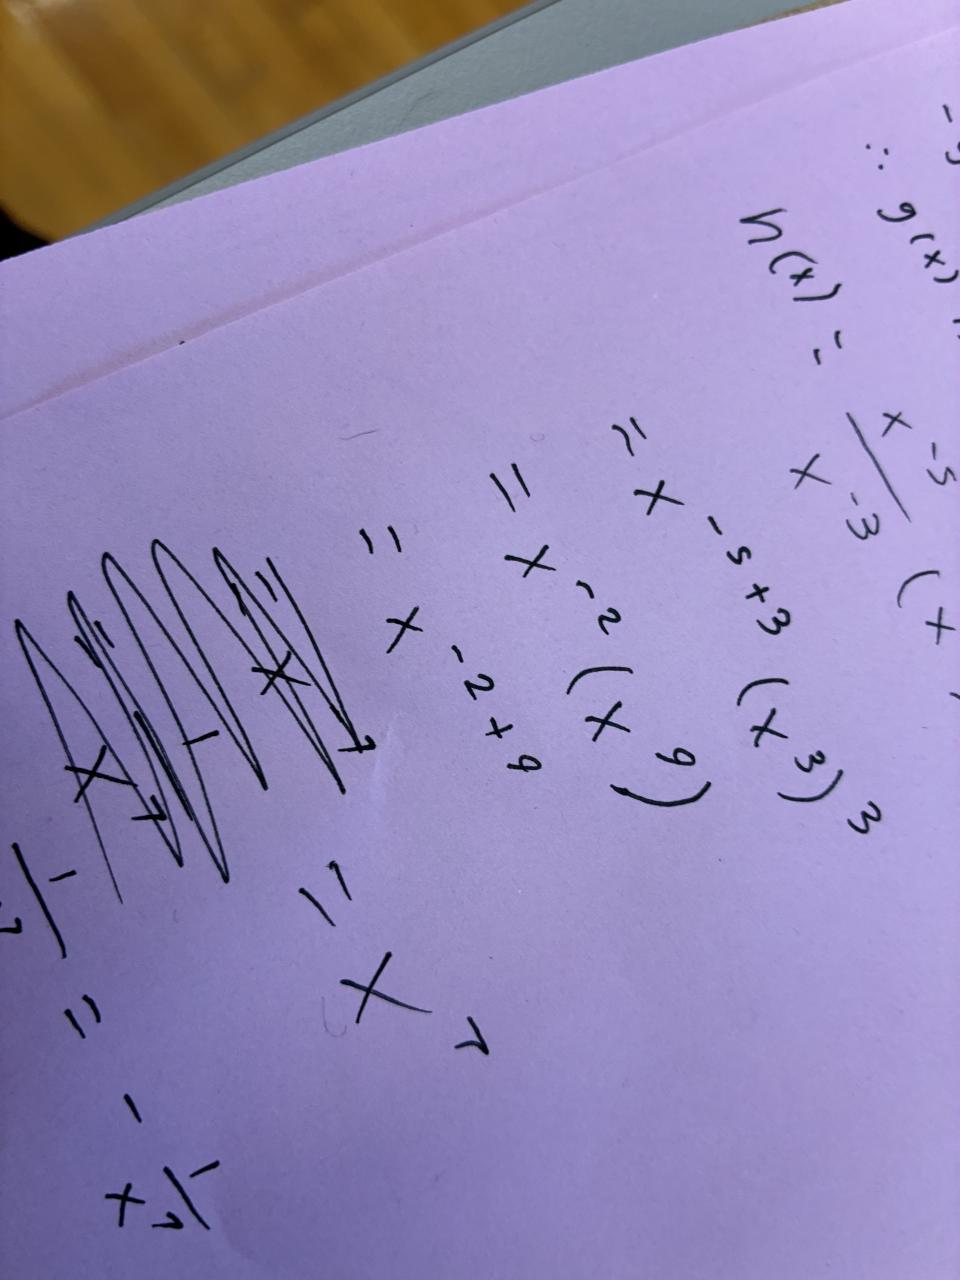 ∴ g(x)
h(x) = x^-5 / x^-3 (x
= x^-5+3 (x^3)^3
= x^-2 (x^9)
= x^-2+9 = x^7
= - 1/x^7